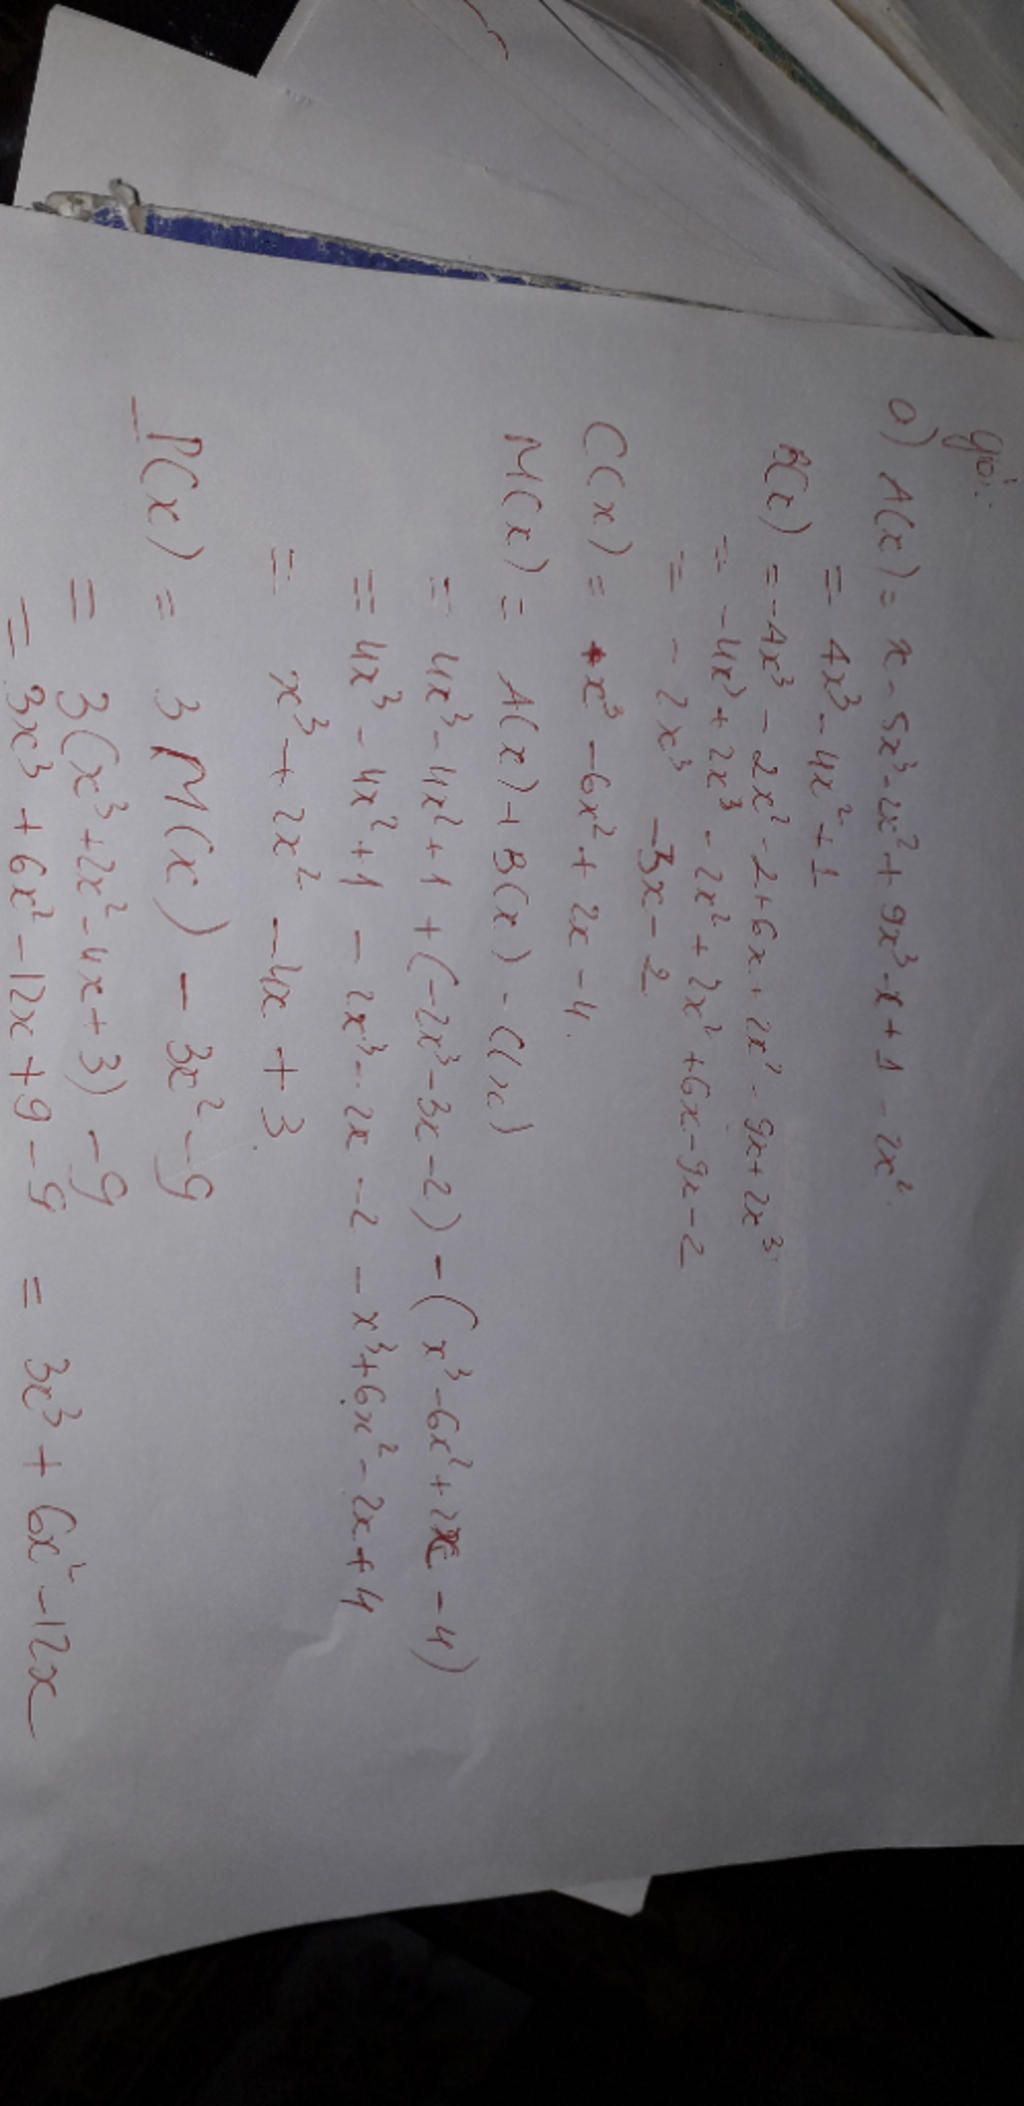 giải:
a) A(x) = x - 5x³ - 2x² + 9x³ - x + 1 - 2x²
= 4x³ - 4x² + 1
B(x) = -4x³ - 2x² - 2 + 6x + 2x² - 9x + 2x³
= -4x³ + 2x³ - 2x² + 2x² + 6x - 9x - 2
= -2x³ -3x - 2
C(x) = x³ - 6x² + 2x - 4.
M(x) = A(x) + B(x) - C(x)
= 4x³ - 4x² + 1 + (-2x³ - 3x - 2) - (x³ - 6x² + 2x - 4)
= 4x³ - 4x² + 1 - 2x³ - 2x - 2 - x³ + 6x² - 2x + 4
= x³ + 2x² - 4x + 3
P(x) = 3M(x) - 3x² - 9
= 3(x³ + 2x² - 4x + 3) - 9
= 3x³ + 6x² - 12x + 9 - 9 = 3x³ + 6x² - 12x